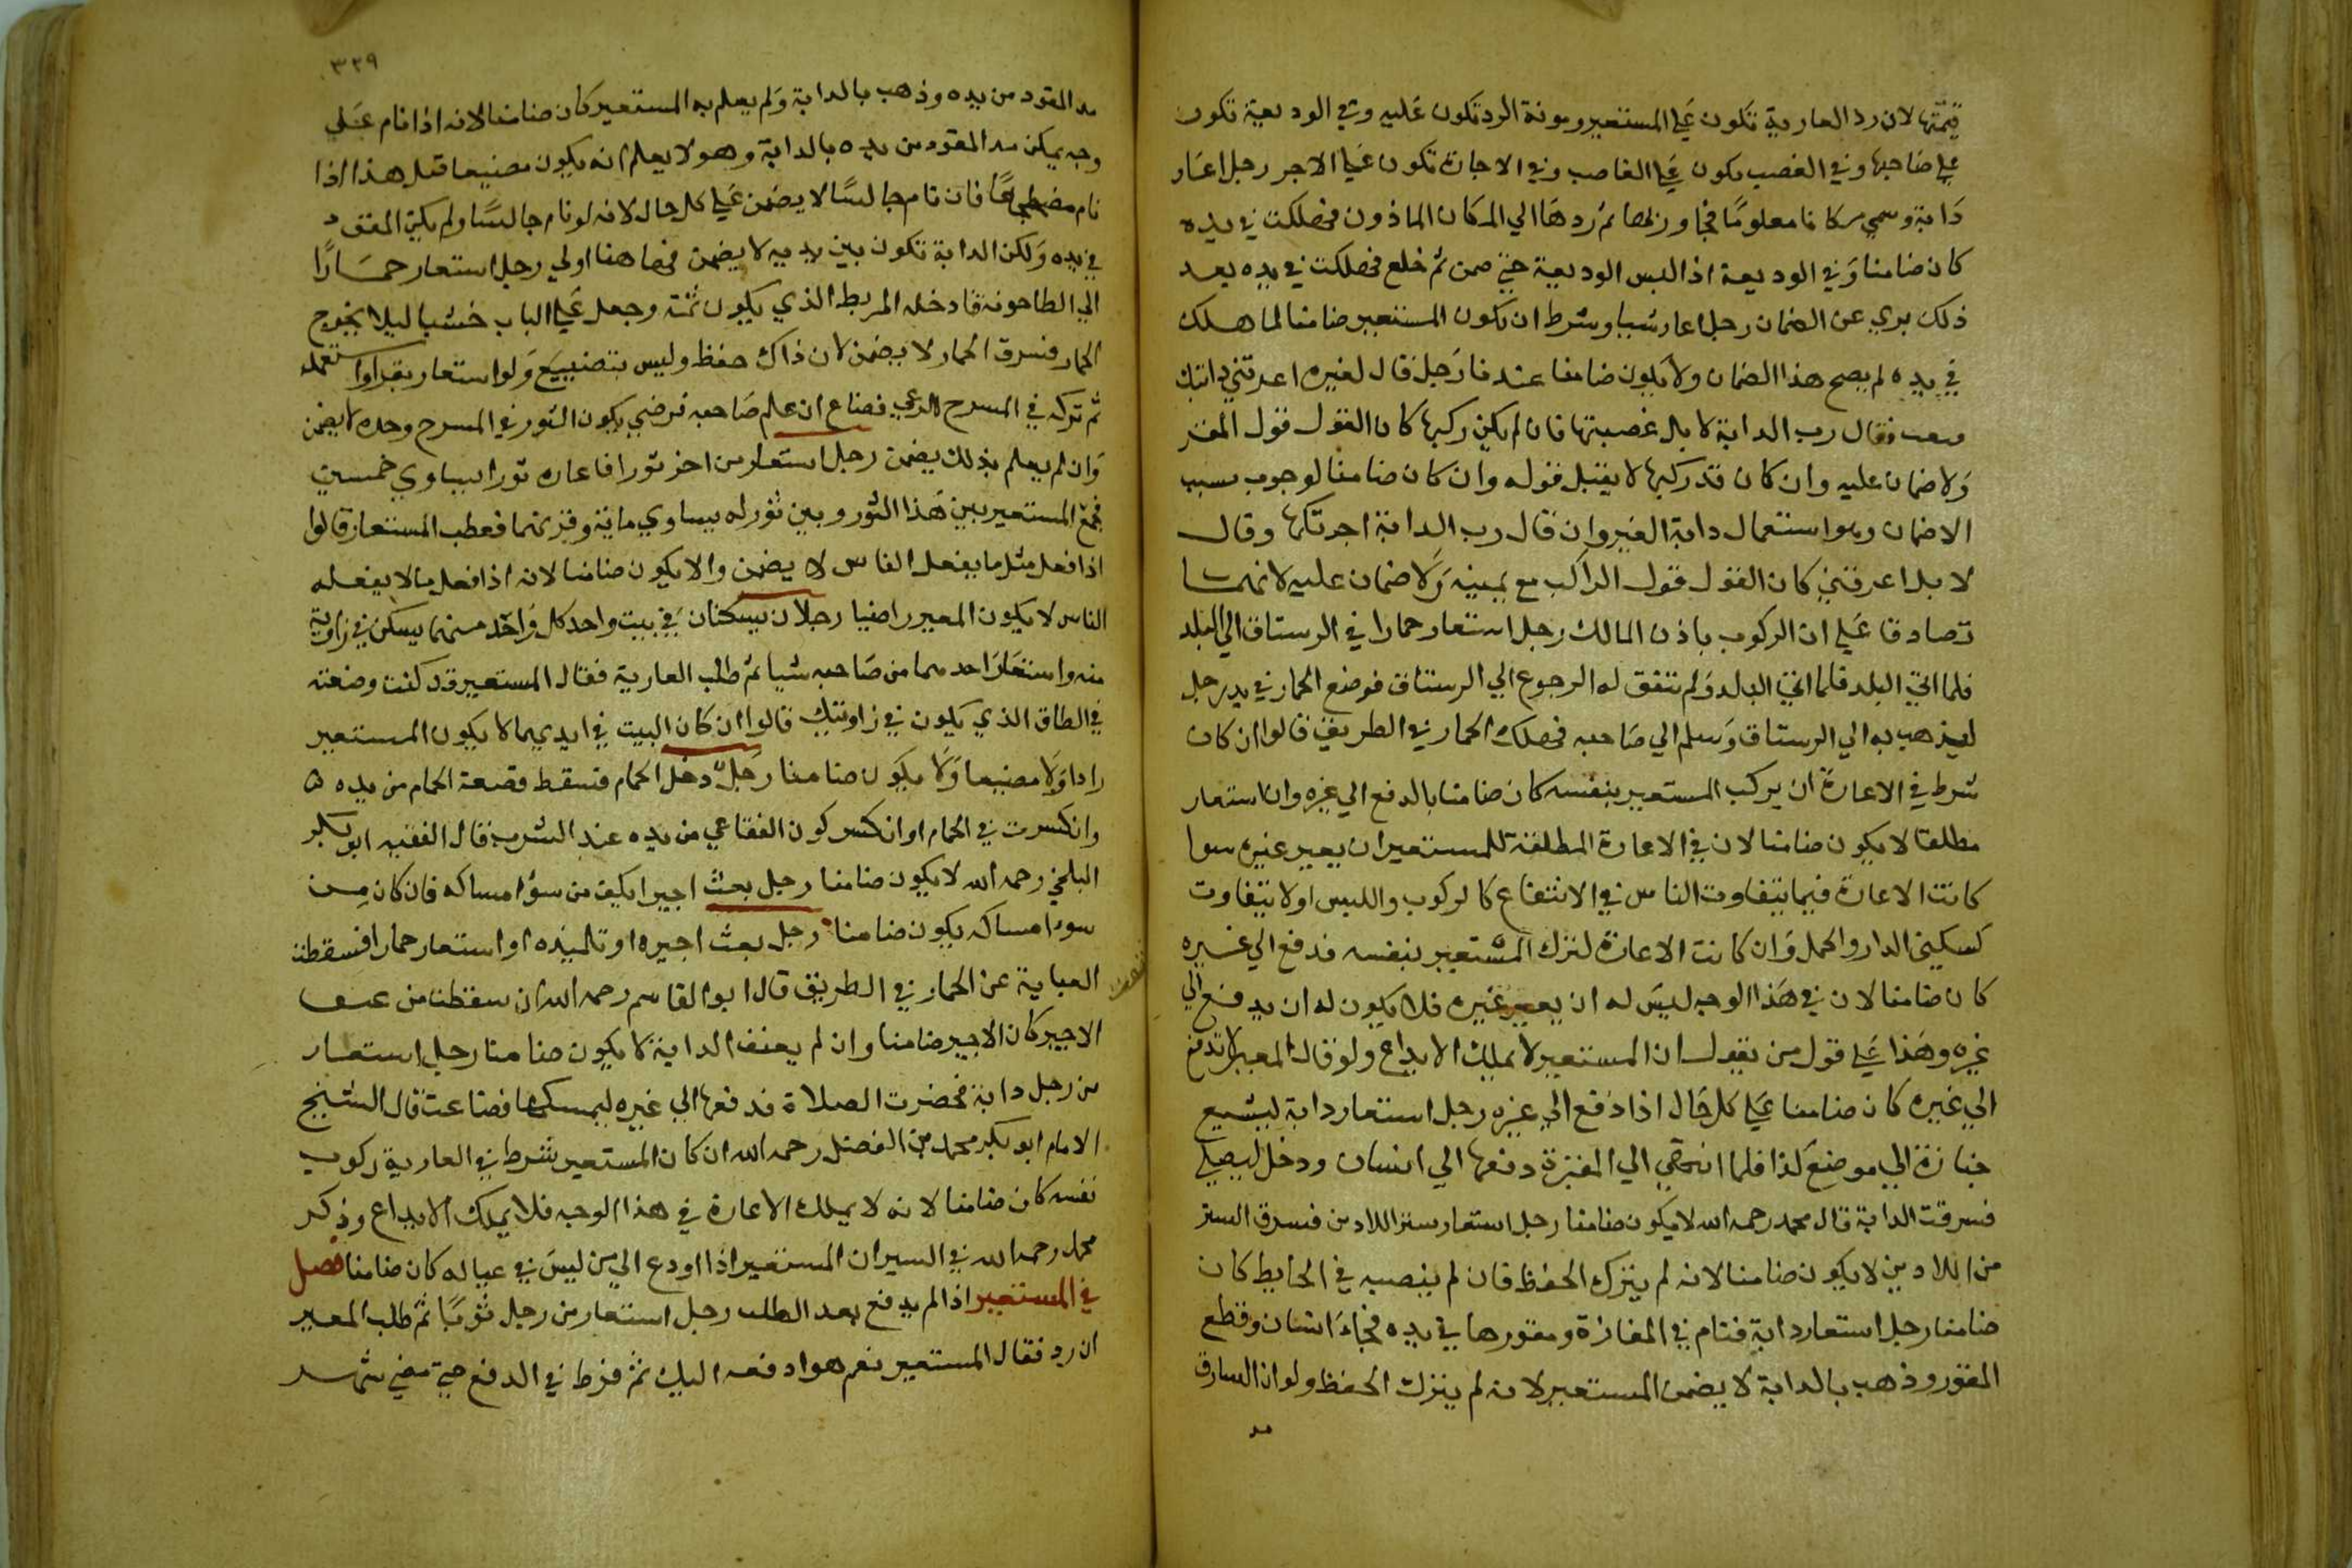 قيمتها لان رد العارية تكون علي المستعير ومونة الرد تكون عليه وفي الوديعة تكون
علي صاحبها وفي الغصب يكون علي الغاصب وفي الاجارة تكون علي الاجر رجل اعار
دابة وسمي مكانا معلوما فجاوزها ثم ردها الي المكان الماذون فهلكت في يده
كان ضامنا وفي الوديعة اذا لبس الوديعة حتي ضمن ثم خلع فهلكت في يده بعد
ذلك بري عن الضمان رجل اعار شيا وشرط ان يكون المستعير ضامنا لما هلك
في يده لم يصح هذا الضمان ولا يكون ضامنا عندنا رجل قال لغيره اعرتني دابتك
فقال رب الدابة لا بل غصبتها فان لم يكن ركبها كان القول قول المقر
ولا ضمان عليه وان كان قد ركبها لا يقبل قوله وان كان ضامنا لوجوب سبب
الاضمان وهو استعمال دابة الغير وان قال رب الدابة اجرتكها وقال
لا بل اعرتني كان القول قول الراكب مع يمينه ولا ضمان عليه لانهما
تصادقا علي ان الركوب باذن المالك رجل استعار حمارا في الرستاق الي البلد
فلما اتي البلد فلما اتي البلد ولم يتفق له الرجوع الي الرستاق فوضع الحمار في يد رجل
ليذهب به الي الرستاق وسلم الي صاحبه فهلك الحمار في الطريق قالوا ان كان
شرط في الاعارة ان يركب المستعير بنفسه كان ضامنا بالدفع الي غيره وان استعار
مطلقا لا يكون ضامنا لان في الاعارة المطلقة للمستعير ان يعير غيره سوا
كانت الاعارة فيما يتفاوت الناس في الانتفاع كالركوب واللبس او لا يتفاوت
كسكني الدار والحمل وان كانت الاعارة لتركب المستعير بنفسه فدفع الي غيره
كان ضامنا لان في هذا الوجه ليس له ان يعير غيره فلا يكون له ان يدفع الي
غيره وهذا علي قول من يقول ان المستعير لا يملك الايداع ولو قال المعير لا تدفع
الي غيره كان ضامنا علي كل حال اذا دفع الي غيره رجل استعار دابة ليشيع
جنازة الي موضع كذا فلما انتهي الي المقبرة دفعها الي انسان ودخل ليصلي
فسرقت الدابة قال محمد رحمه الله لا يكون ضامنا رجل استعار ستر اللادين فسرق الستر
من اللادين لا يكون ضامنا لانه لم يترك الحفظ فان لم ينصبه في الحايط كان
ضامنا رجل استعار دابة فنام في المفازة ومقودها في يده فجاء انسان وقطع
المقود وذهب بالدابة لا يضمن المستعير لانه لم يترك الحفظ ولو ان السارق
مد
٣٢٩
مد المقود من يده وذهب بالدابة ولم يعلم به المستعير كان ضامنا لانه اذا نام علي
وجه يمكن مد المقود من يده بالدابة وهو لا يعلم انه يكون مضيعا قيل هذا اذا
نام مضطجعا فان نام جالسا لا يضمن علي كل حال لانه لو نام جالسا ولم يكن المقود
في يده ولكن الدابة تكون بين يديه لا يضمن فهاهنا اولي رجل استعار حمارا
الي الطاحونة فادخله المربط الذي يكون ثمة وجعل علي الباب خشبا ليلا يخرج
الحمار فسرق الحمار لا يضمن لان ذاك حفظ وليس بتضييع ولو استعار بقرا واستعمله
ثم تركه في المسرح للرعي فضاع ان علم صاحبه فرضي يكون الثور في المسرح وحده لا يضمن
وان لم يعلم بذلك يضمن رجل استعار من اخر ثورا فاعاره ثورا يساوي خمسين
فجمع المستعير بين هذا الثور وبين ثور له يساوي ماية وقرنهما فعطب المستعار قالوا
اذا فعل مثل ما يفعل الناس لا يضمن والا يكون ضامنا لانه اذا فعل ما لا يفعله
الناس لا يكون المعير راضيا رجلان يسكنان في بيت واحد كل واحد منهما يسكن في زاوية
منه واستعار احدهما من صاحبه شيا ثم طلب العارية فقال المستعير قد كنت وضعته
في الطاق الذي يكون في زاويتك قالوا ان كان البيت في ايديهما لا يكون المستعير
رادا ولا مضيعا ولا يكون ضامنا رجل دخل الحمام فسقط قصعة الحمام من يده
وانكسرت في الحمام او انكسر كوز الفقاعي من يده عند الشرب قال الفقيه ابو بكر
البلخي رحمه الله لا يكون ضامنا رجل بعث اجيرا يكن من سؤ امساكه فان كان من
سوء امساكه يكون ضامنا رجل بعث اجيره او تلميذه او استعار حمارا فسقطت
العباية عن الحمار في الطريق قال ابو القاسم رحمه الله ان سقطت من عنف
الاجير كان الاجير ضامنا وان لم يعنف الدابة لا يكون ضامنا رجل استعار
من رجل دابة فحضرت الصلاة فدفعها الي غيره ليمسكها فضاعت قال الشيخ
الامام ابو بكر محمد بن الفضل رحمه الله ان كان المستعير شرط في العارية ركوب
نفسه كان ضامنا لانه لا يملك الاعارة في هذا الوجه فلا يملك الايداع وذكر
محمد رحمه الله في السير ان المستعير اذا اودع الي من ليس في عياله كان ضامنا فصل
في المستعير اذا لم يدفع بعد الطلب رجل استعار من رجل ثوبا ثم طلب المعير
ان رد فقال المستعير نعم هو ادفعه اليك ثم فرط في الدفع حتي مضي شهر